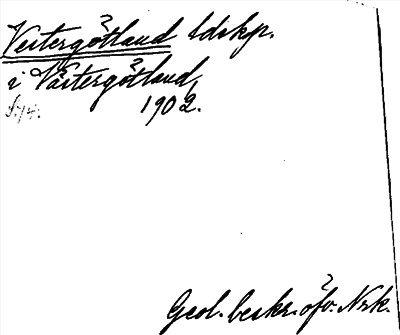 Vestergötland ldskp.
i Västergötland,
1902.
S. 74.
Geol. beskr. öfv. Nrk.